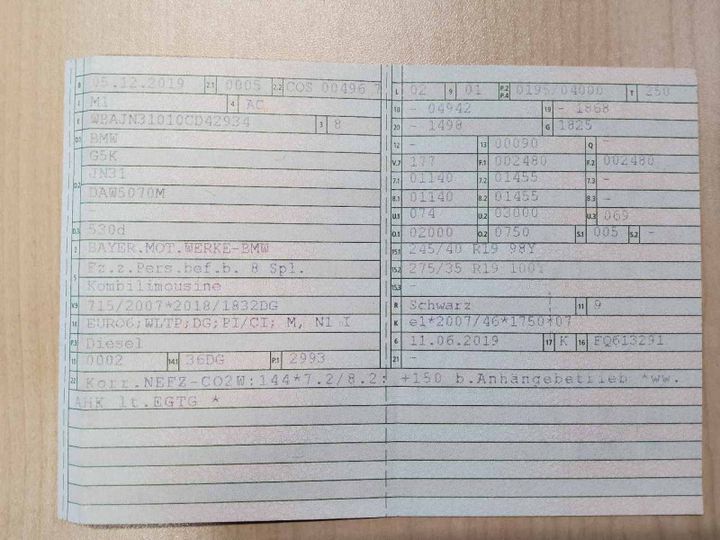 B 05.12.2019 2.1 0005 2.2 COS 00496 7
J M1 4 AC
E WBAJN31010CD42934 3 8
D.1 BMW
G5K
D.2 JN31
DAW5070M
-
D.3 530d
2 BAYER.MOT.WERKE-BMW
5 Fz.z.Pers.bef.b. 8 Spl.
Kombilimousine
V.9 715/2007*2018/1832DG
14 EURO6;WLTP;DG;PI/CI; M, N1 I
P.3 Diesel
10 0002 14.1 36DG P.1 2993
L 02 9 01 P.2 P.4 0195/04000 T 250
18 - 04942 19 - 1868
20 - 1498 G 1825
12 - 13 00090 Q -
V.7 177 F.1 002480 F.2 002480
7.1 01140 7.2 01455 7.3 -
8.1 01140 8.2 01455 8.3 -
U.1 074 U.2 03000 U.3 069
O.1 02000 O.2 0750 S.1 005 S.2 -
15.1 245/40 R19 98Y
15.2 275/35 R19 100Y
15.3 -
R Schwarz 11 9
K e1*2007/46*1750*07
6 11.06.2019 17 K 16 FQ613291
21 -
22 Korr.NEFZ-CO2W:144*7.2/8.2: +150 b.Anhängebetrieb *ww.
AHK lt.EGTG *